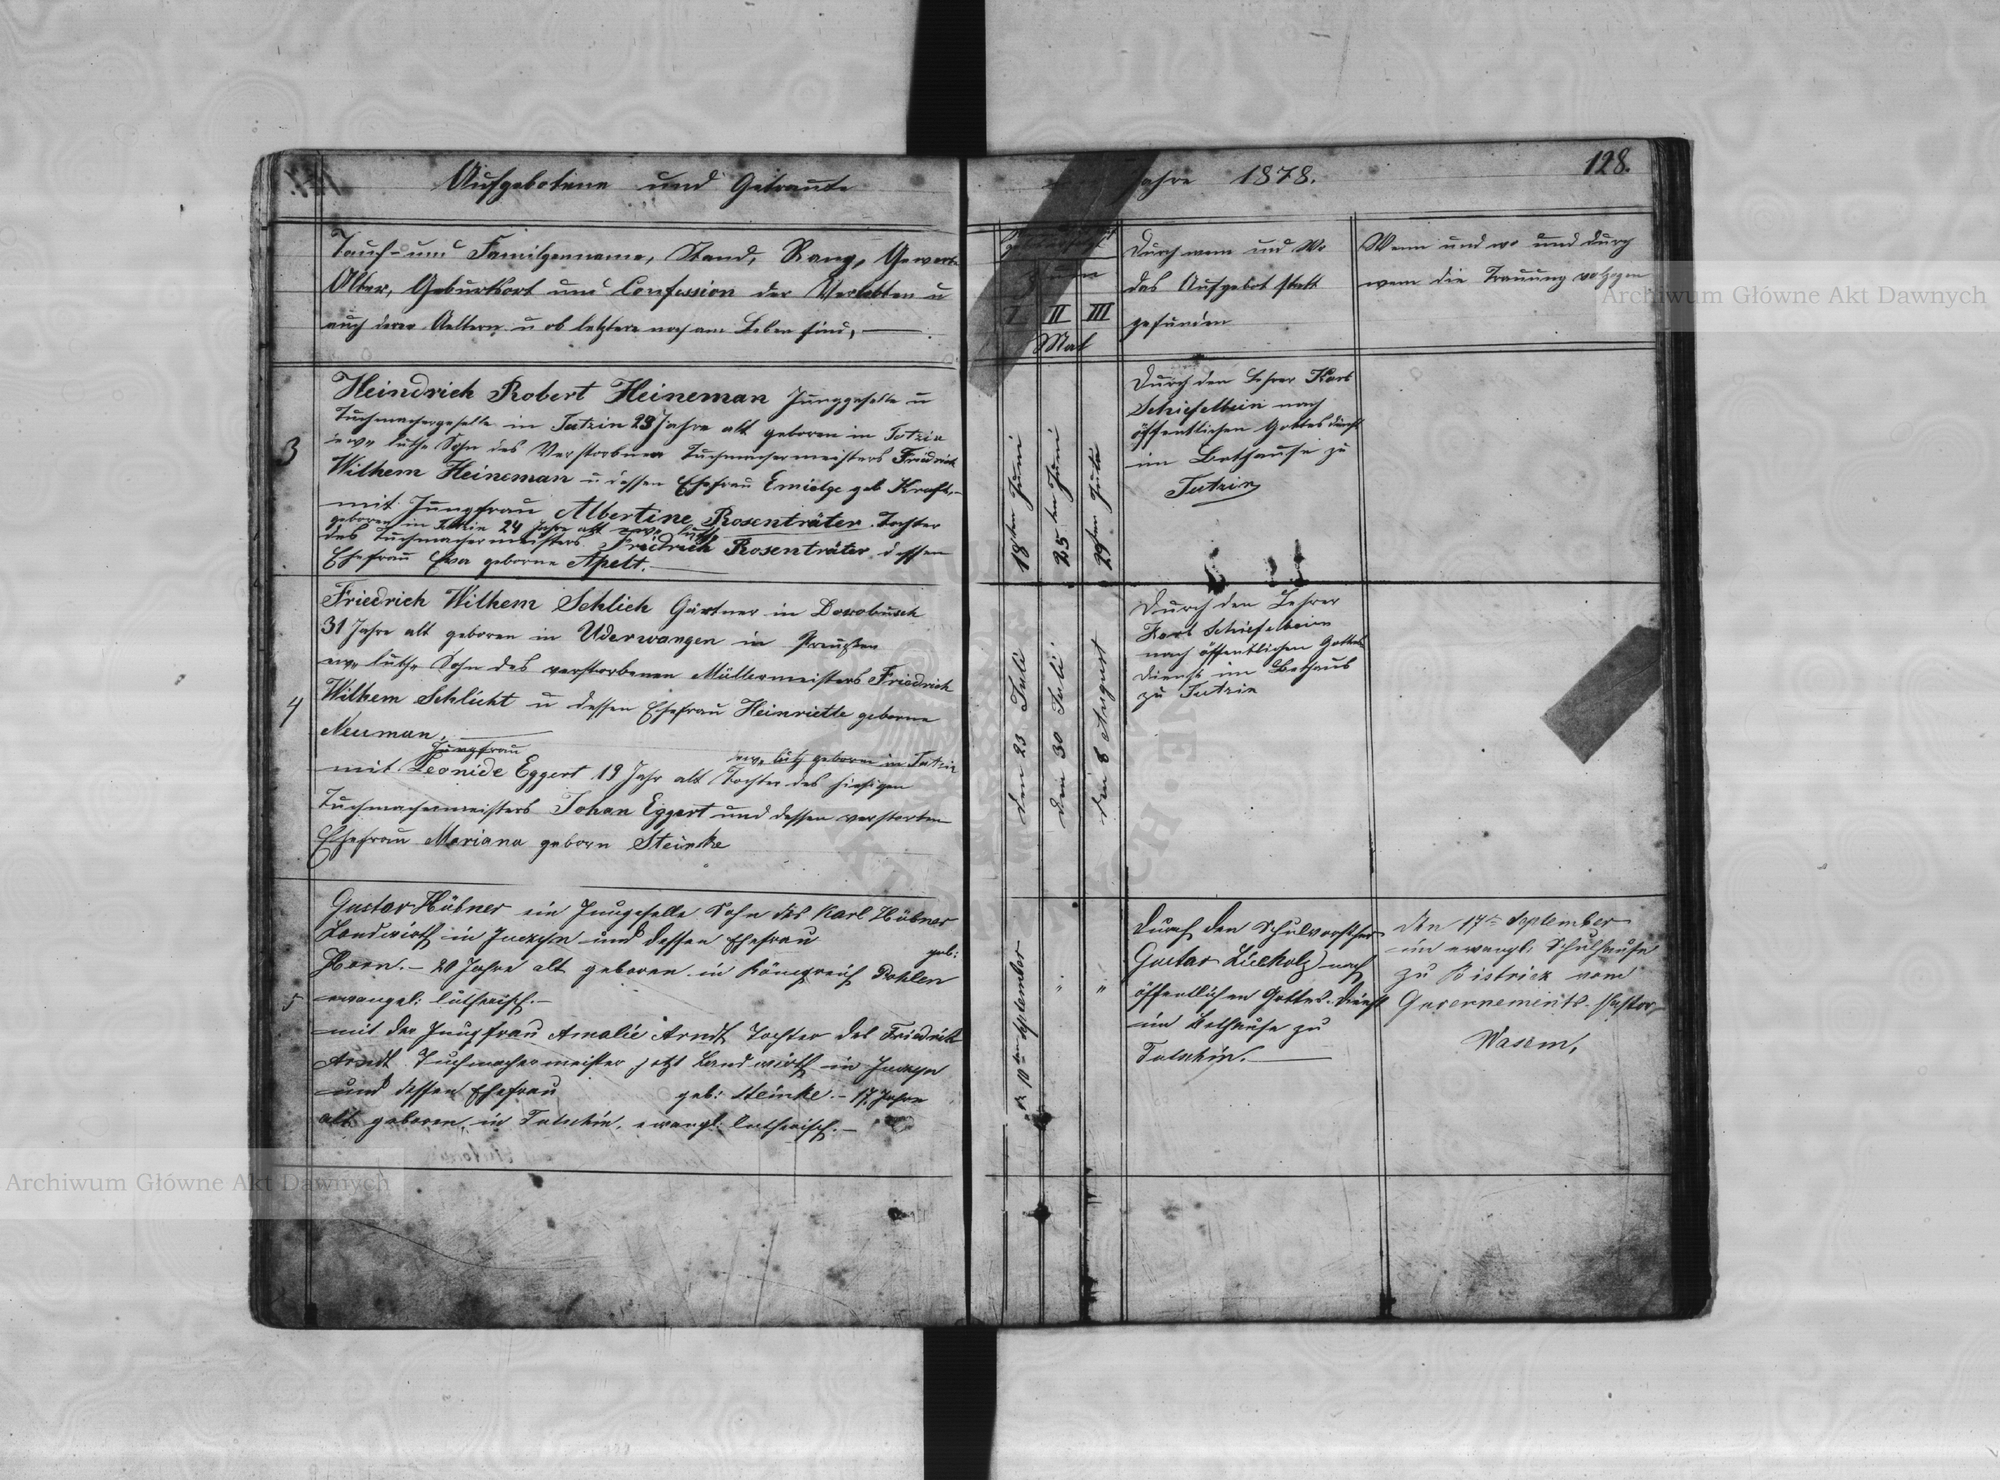 Aufgebotene und Getraute
Jahre 1878.
128.
Tauf- und Familgenname, Stand, Rang, Gewerbe
Alter, Geburtsort und Confession der Verlobten u
auch derer Aeltern u ob letztere noch am Leben sind, —
I II III
Mal
Durch wem und Wo
das Aufgebot statt
gefunden
Wenn und wo und durch
wem die Trauung volzogen
3
Heindrich Robert Heineman Junggeselle u
Tuchmachergeselle in Tutzin 23 Jahre alt geboren in Tutzin
ew. luth. Sohn des Verstorbnen Tuchmachermeisters Friedrich
Wilhem Heineman u dessen Ehefrau Emielge geb Kraft.
mit Jungfrau Albertine Rosenträter. Tochter
geboren in Tutzin 24 Jahre alt ew. luth.
des Tuchmachermeisters Friedrich Rosenträter dessen
Ehefrau Eva geborne Apelt.
18ten Juni
25ten Juni
Durch den Lehrer Karl
Schiefelbein nach
öffentlichen Gottesdinst
im Bethause zu
Tutzin
4
Friedrich Wilhem Schlich Gärtner in Dorobusch
31 Jahre alt geboren in Uderwangen in Preußen
ew. luth. Sohn des verstorbenen Müllermeisters Friedrich
Wilhem Schlicht u dessen Ehefrau Heinriette geborne
Neuman.
Jungfrau
ew. luth geboren in Tutzin
mit Leonide Eggert 19 Jahr alt Tochter des hiesigen
Tuchmachermeisters Johan Eggert und dessen verstorben
Ehefrau Mariana geborn Steinke
den 23 Juli
den 30 Juli
den 8 August
Durch den Lehrer
Karl Schiefelbein
nach öffentlichen Gottes
dienst im Bethaus
zu Tutzin
5
Gustav Hübner ein Jungeselle Sohn des Karl Hübner
Landwirth in und dessen Ehefrau geb:
Horn. — 20 Jahre alt geboren in Königreich Pohlen
ewangel: lutherisch. —
mit der Jungfrau Amalie Arndt Tochter des Friedrich
Arndt Tuchmachermeister jetzt Landwirth in
und dessen Ehefrau geb: Steinke. — 17 Jahre
alt geboren in Tutschin. ewangl: lutherisch. —
10ten September
" "
Durch den Schulvorsteher
Gustav nach
öffentlichen Gottes-Dinst
im Bethause zu
Tutschin. —
Den 17ten September
im ewangl: Schulhause
zu vom
Guvernements-Pastor
Wasem.
Archiwum Główne Akt Dawnych
Archiwum Główne Akt Dawnych